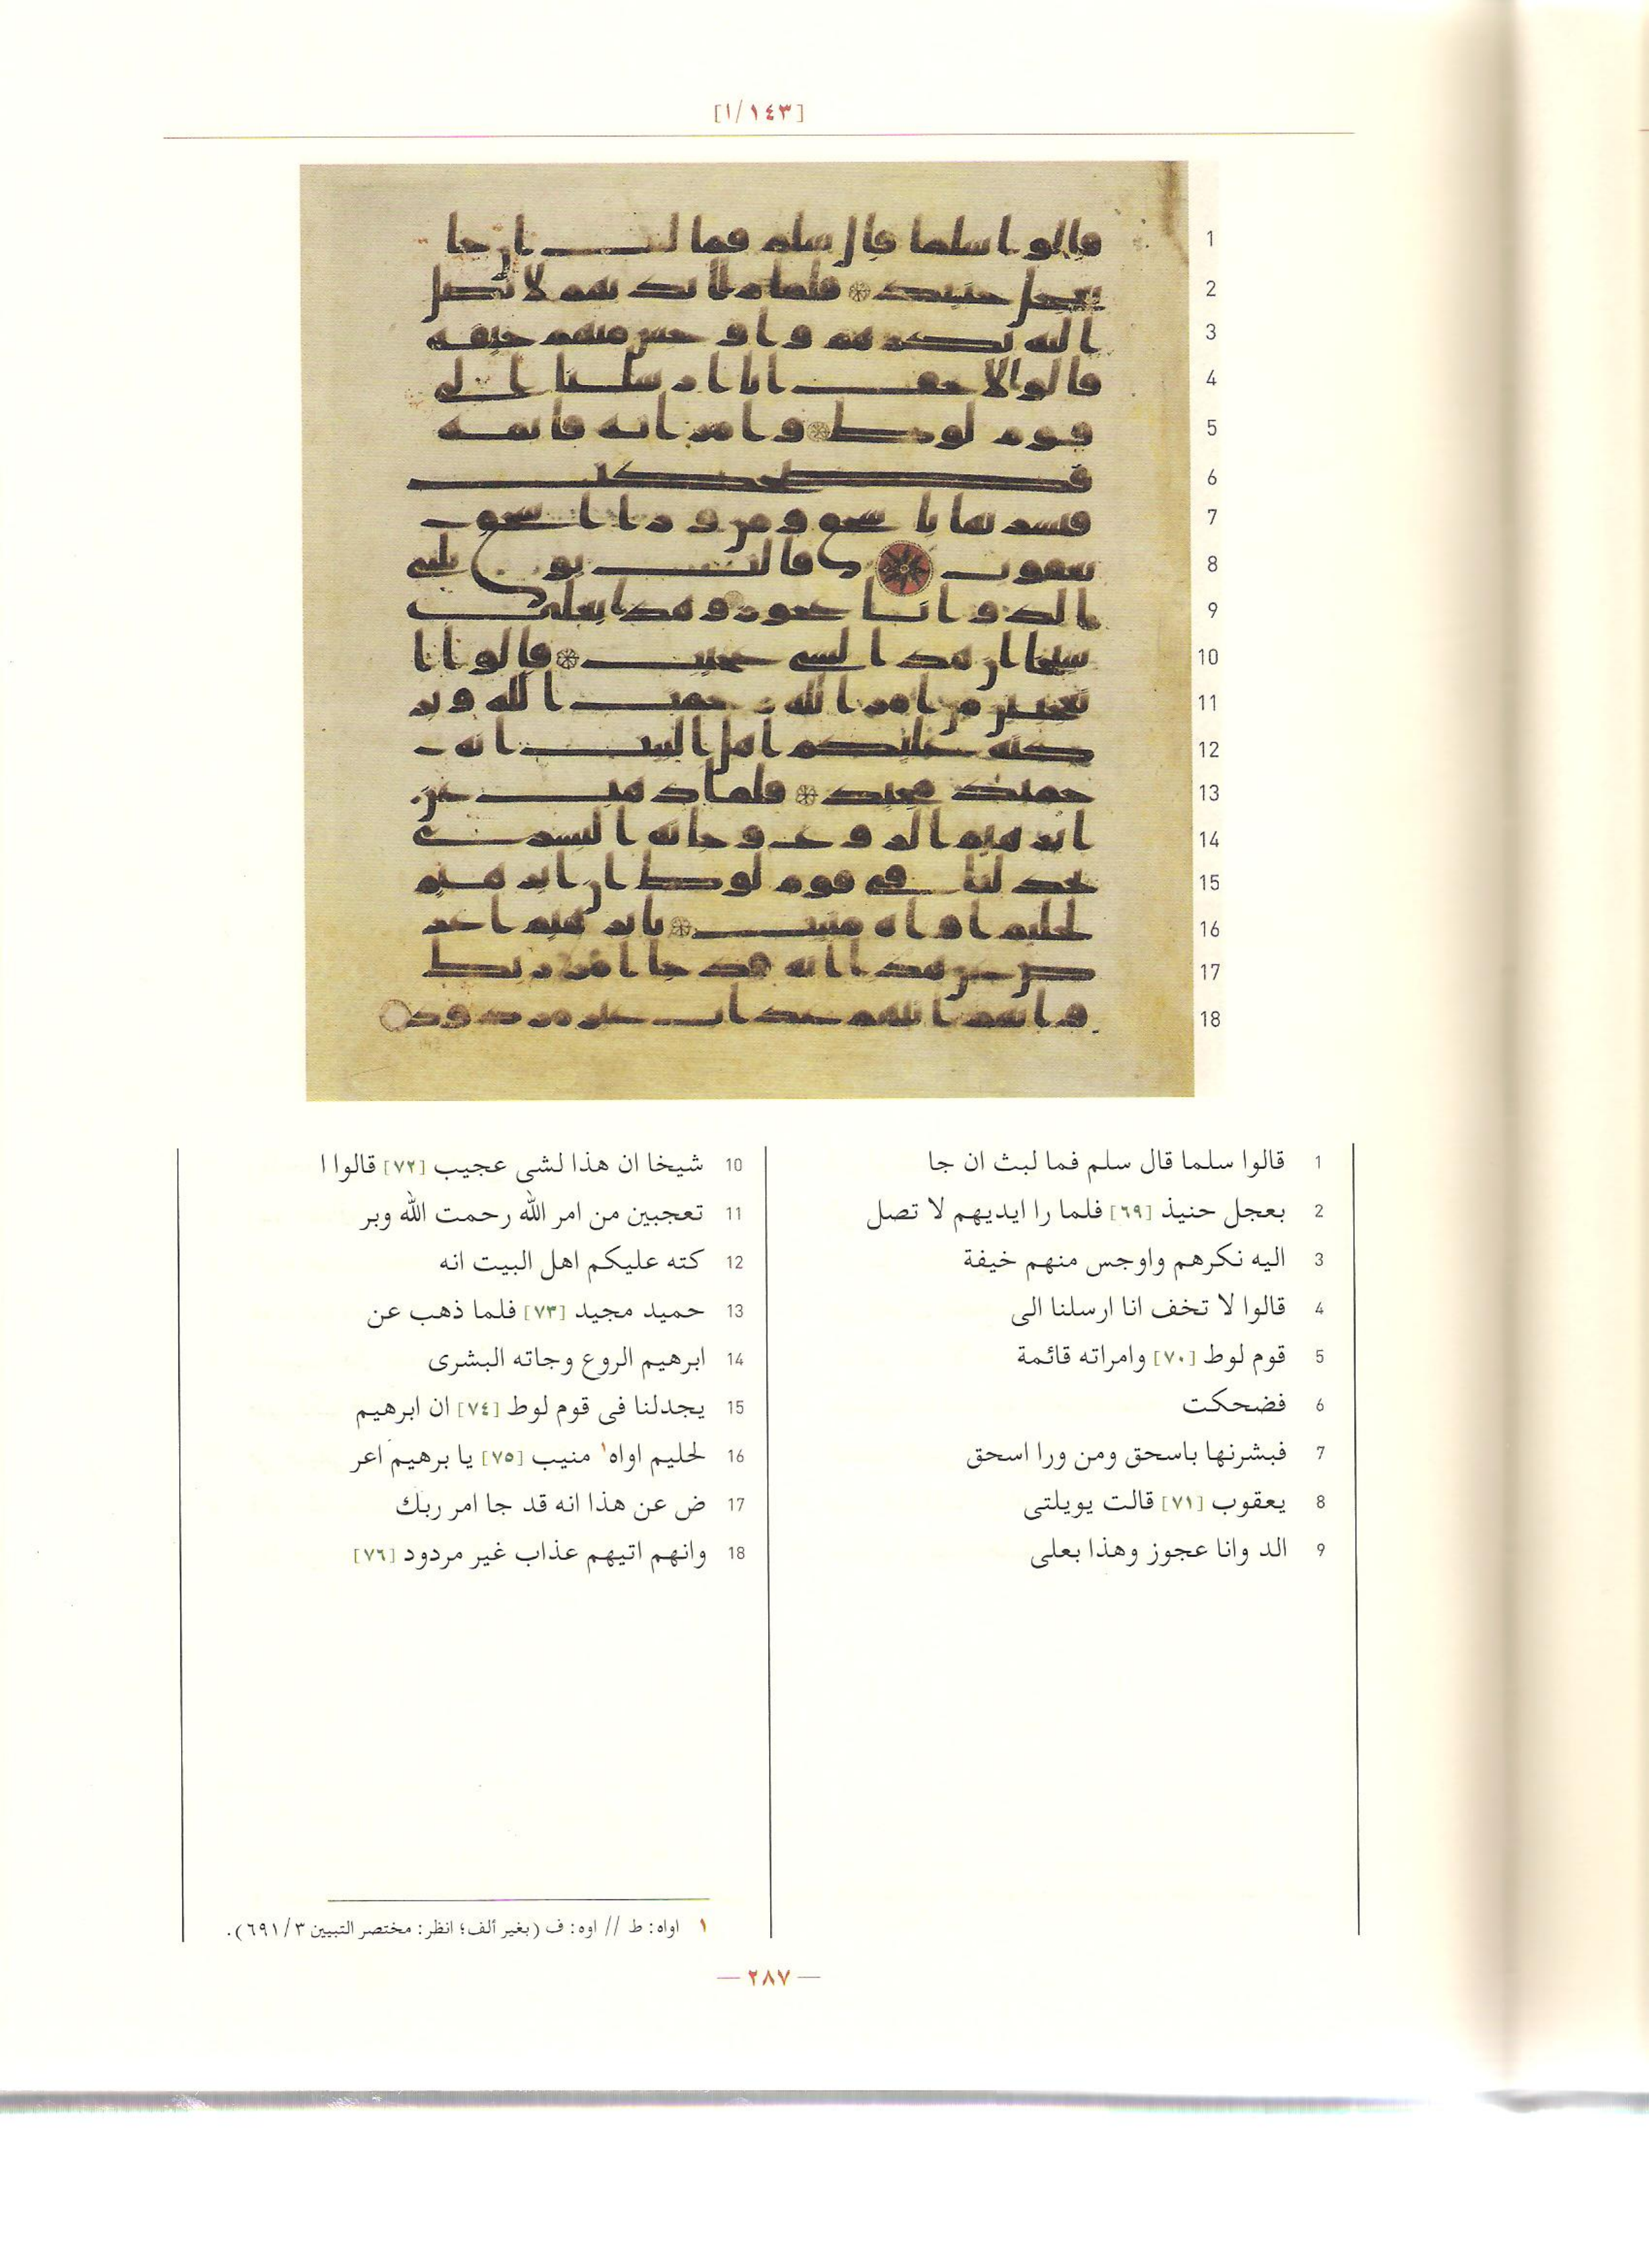 [١/١٤٣]
1 قالوا سلما قال سلم فما لبث ان جا
2 بعجل حنيذ [٦٩] فلما را ايديهم لا تصل
3 اليه نكرهم واوجس منهم خيفة
4 قالوا لا تخف انا ارسلنا الى
5 قوم لوط [٧٠] وامراته قائمة
6 فضحكت
7 فبشرنها باسحق ومن ورا اسحق
8 يعقوب [٧١] قالت يويلتى
9 الد وانا عجوز وهذا بعلى
10 شيخا ان هذا لشى عجيب [٧٢] قالوا ا
11 تعجبين من امر الله رحمت الله وبر
12 كته عليكم اهل البيت انه
13 حميد مجيد [٧٣] فلما ذهب عن
14 ابرهيم الروع وجاته البشرى
15 يجدلنا فى قوم لوط [٧٤] ان ابرهيم
16 لحليم اواه١ منيب [٧٥] يا برهيم اعر
17 ض عن هذا انه قد جا امر ربك
18 وانهم اتيهم عذاب غير مردود [٧٦]
١ اواه: ط // اوه: ف (بغير ألف؛ انظر: مختصر التبيين ٦٩١/٣).
— ٢٨٧ —